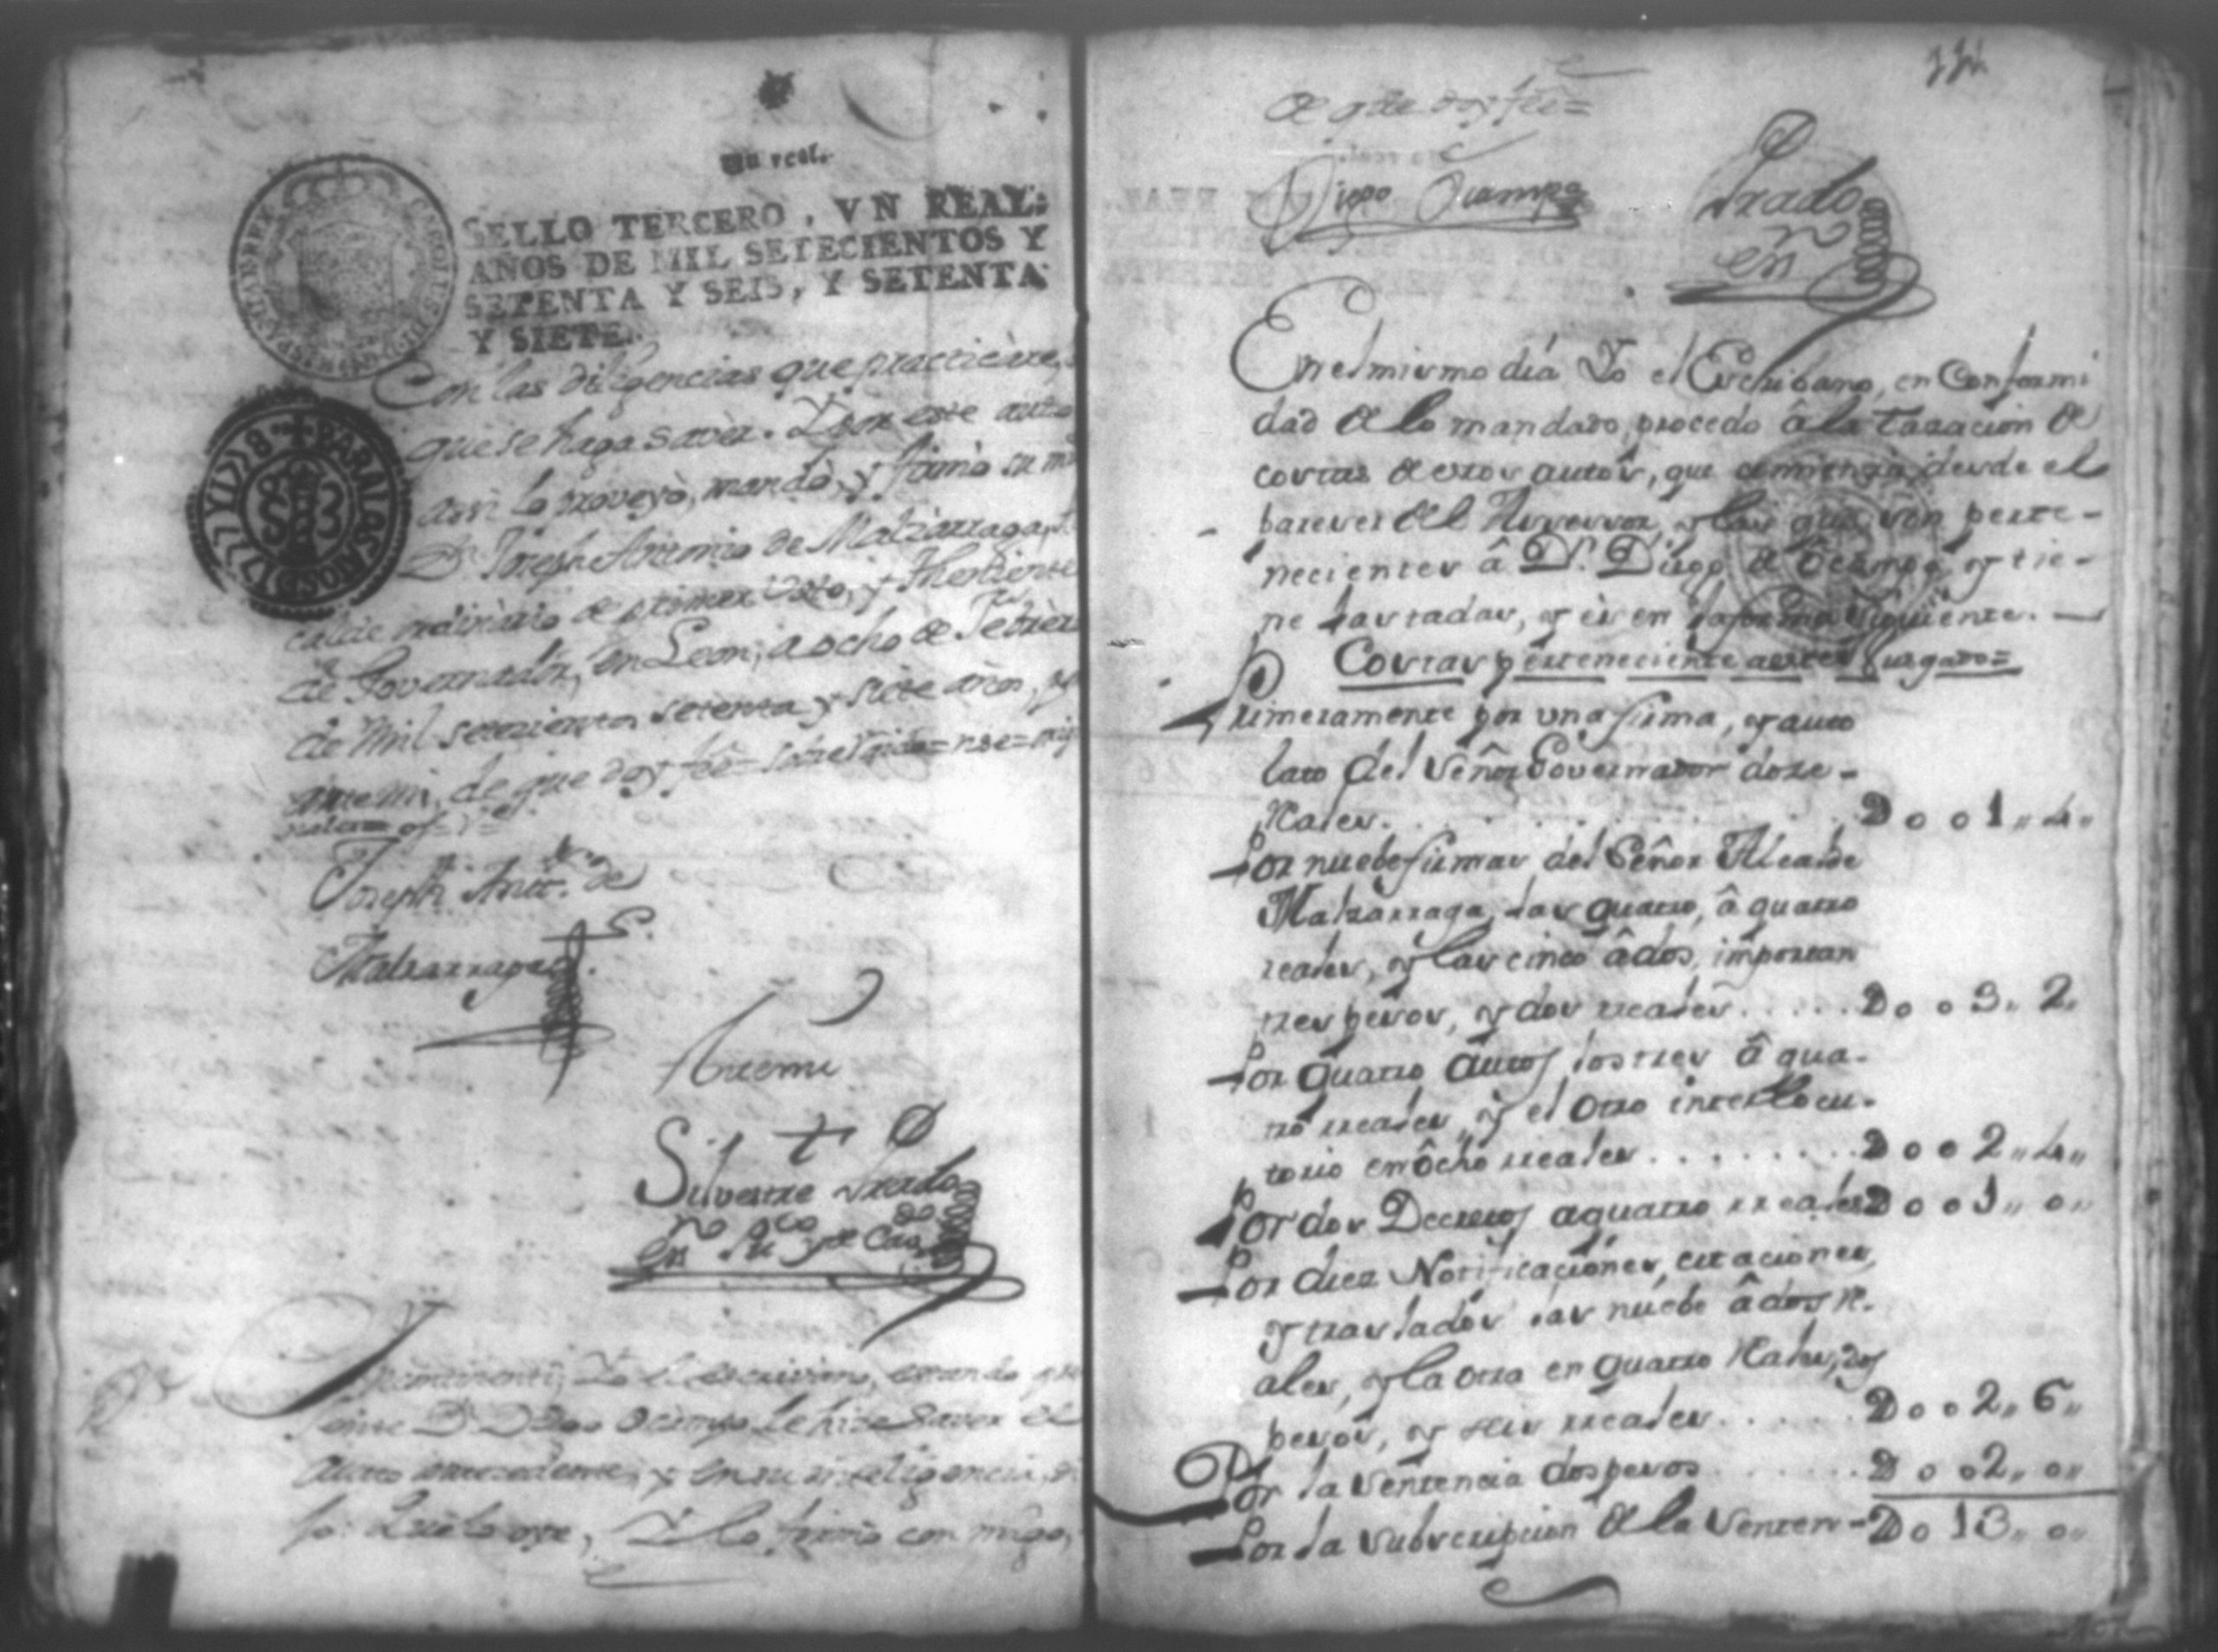 Un real.
SELLO TERCERO, VN REAL:
AÑOS DE MIL SETECIENTOS Y
SETENTA Y SEIS, Y SETENTA
Y SIETE.
Con las diligencias que practicàre,
que se haga saver. Y por este auto
assi lo proveyò, mandò, y firmò su md
Dn. Joseph Antonio de Malzarraga, Al
calde ordinario de primer Voto, y Theniente
de Governador, en Leon, a ocho de Febrer
de Mil setecientos setenta y siete años, por
ante mi, de que doy feê
Joseph Antto. de
Malzarraga
Antemi
Silvestre Prado
Yncontinenti, Yo el escrivano, estando pre
sente Dn. Diego Ocampo le hize saver el
Auto antecedente, y en su inteligencia di
jo: Que lo oye, Y lo firmò con migo,
de que doy feê=
Diego Ocampo
Prado
En el mismo dia Yo el Escribano, en Conformi
dad de lo mandado, procedo â la tazacion de
costas de estos autos, que comienza desde el
parecer del Asesor, y las que son perte-
necientes â Dn. Diego de Ocampo, y tie-
ne lastadas, y es en la forma siguiente.
Costas perteneciente a este Juzgado=
Primeramente por una firma, y auto
lato del Señor Governador doze-
Rales. . . . . D o o 1 ,, 4 ,,
Por nuebe firmas del Señor Alcalde
Malzarraga, las quatro, â quatro
reales, y las cinco â dos, importan
tres pesos, y dos rreales . . . . . D o o 3 ,, 2 ,,
Por quatro autos los tres â qua-
tro rreales, y el otro interllocu-
torio en ôcho rreales . . . . . . . . D o o 2 ,, 4 ,,
Por dos Decretos a quatro rreales D o o 1 ,, o ,,
Por diez Notificaciones, citaciones,
y traslados las nuebe â dos R.
ales, y la otra en quatro Rales, dos
pesos, y seis rreales . . . . . D o o 2 ,, 6 ,,
Por la sentencia dos pesos . . . . . D o o 2 ,, o ,,
Por la subscripcion de la senten- D o 13 ,, o ,,